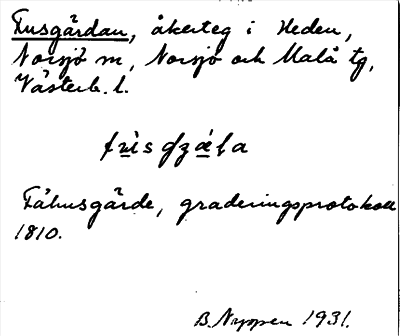 Fusgärdan, åkerteg i Heden,
Norsjö sn, Norsjö och Malå tg,
Västerb. l.
Fähusgärde, graderingsprotokoll
1810.
B. Nyppen 1931.